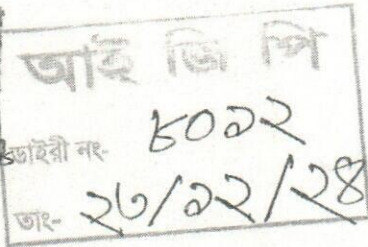 আই জি পি
ডাইরী নং- ৮০১২
তাং- ২৩/১২/২৪